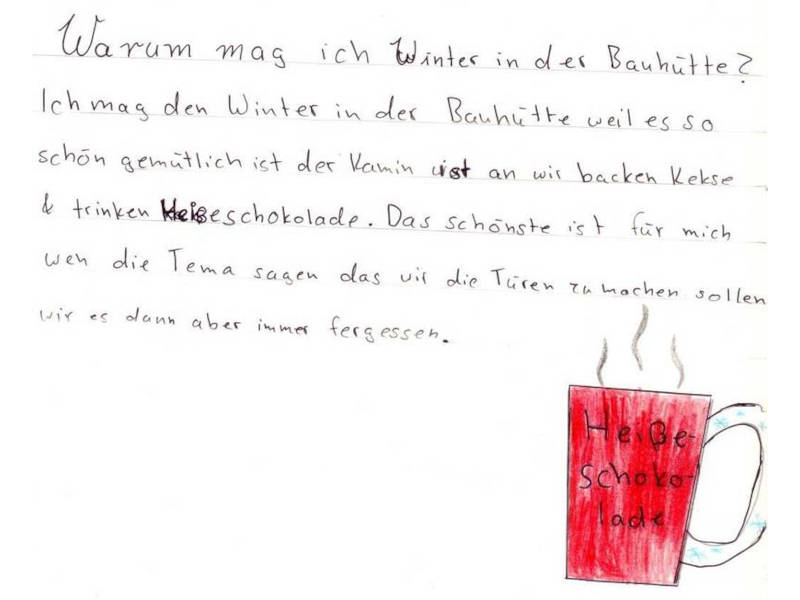 Warum mag ich Winter in der Bauhütte?
Ich mag den Winter in der Bauhütte weil es so
schön gemütlich ist der Kamin ist an wir backen Kekse
& trinken Heißeschokolade. Das schönste ist für mich
wen die Tema sagen das wir die Türen zu machen sollen
wir es dann aber immer fergessen.
Heiße-
schoko-
lade